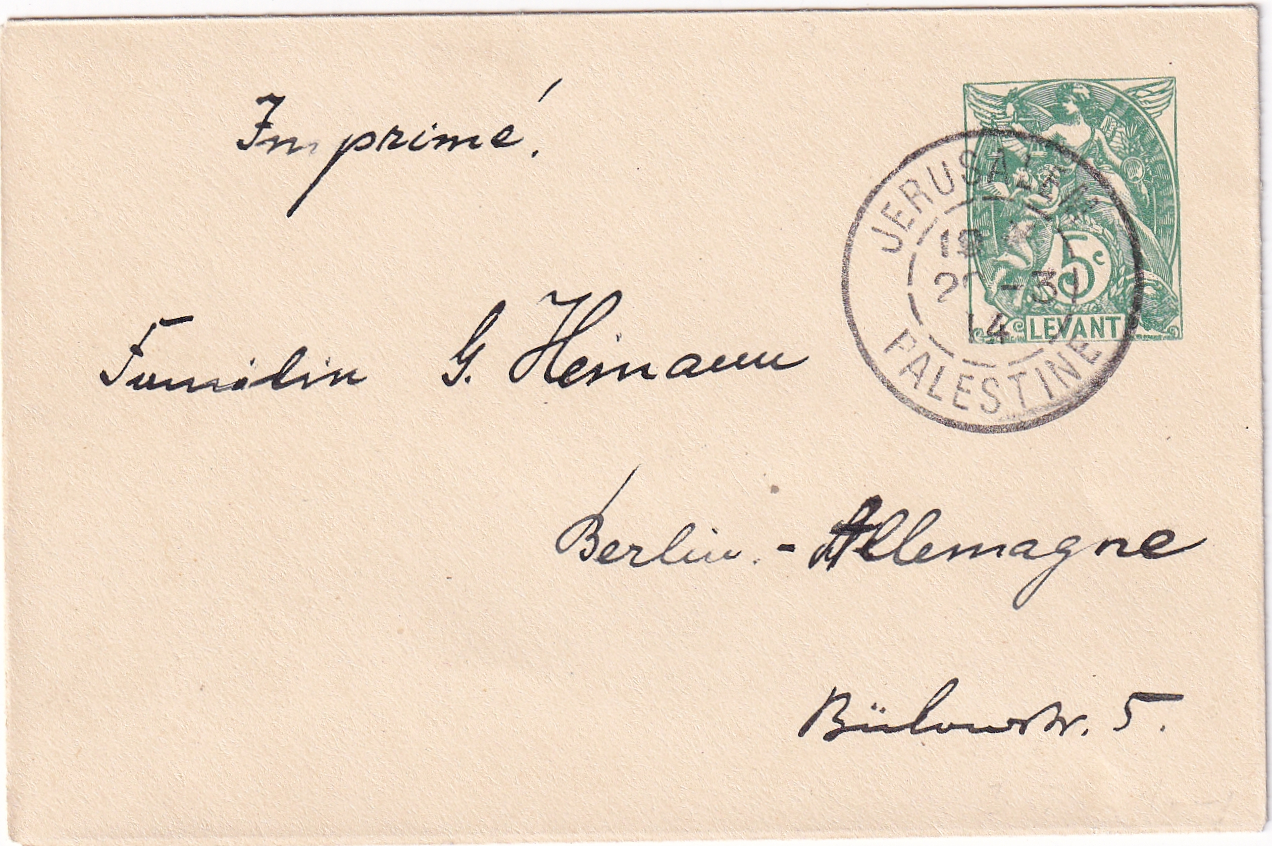 Imprimé.
JERUSALEM
5c
-3
14
LEVANT
PALESTINE
G. Heimann
Berlin. - Allemagne
Bülowstr. 5.